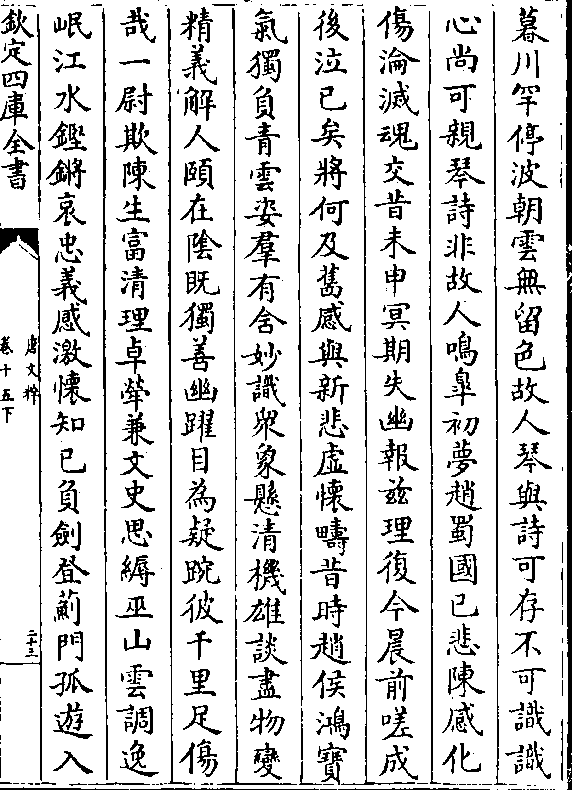 暮川罕停波朝雲無留色故人琴與詩可存不可識識
心尚可親琴詩非故人鳴臯初夢趙蜀國已悲陳感化
傷淪滅魂交昔未申冥期失幽報兹理復今晨前嗟成
後泣已矣將何及舊感與新悲虛懷疇昔時趙侯鴻寶
氣獨負青雲姿羣有含妙識衆象懸清機雄談盡物變
精義解人頤在隂既獨善幽躍自為疑踠彼千里足傷
哉一尉欺陳生富清理卓犖兼文史思縟巫山雲調逸
岷江水鏗鏘哀忠義感激懷知已負劍登薊門孤遊入
欽定四庫全書
唐文粹
卷十五下
二十三